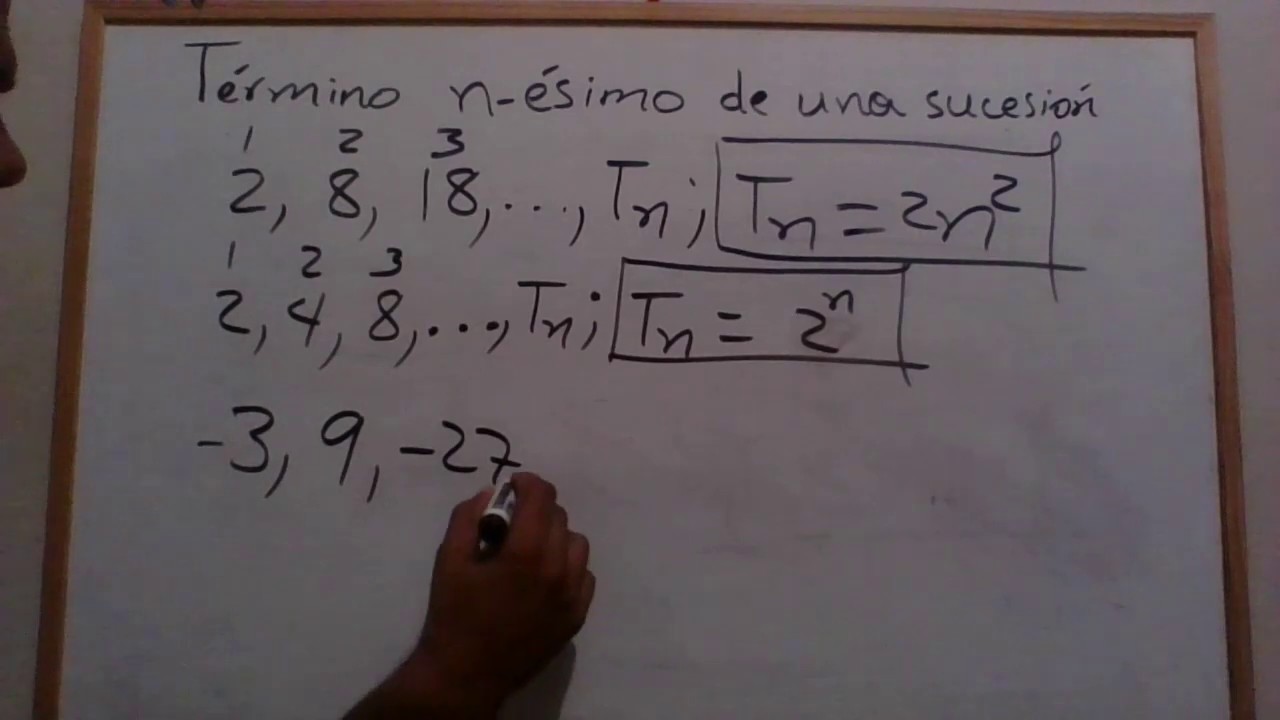 Término n-ésimo de una sucesión
1 2 3
2, 8, 18, ..., Tn; Tn = 2n²
1 2 3
2, 4, 8, ..., Tn; Tn = 2ⁿ
-3, 9, -27